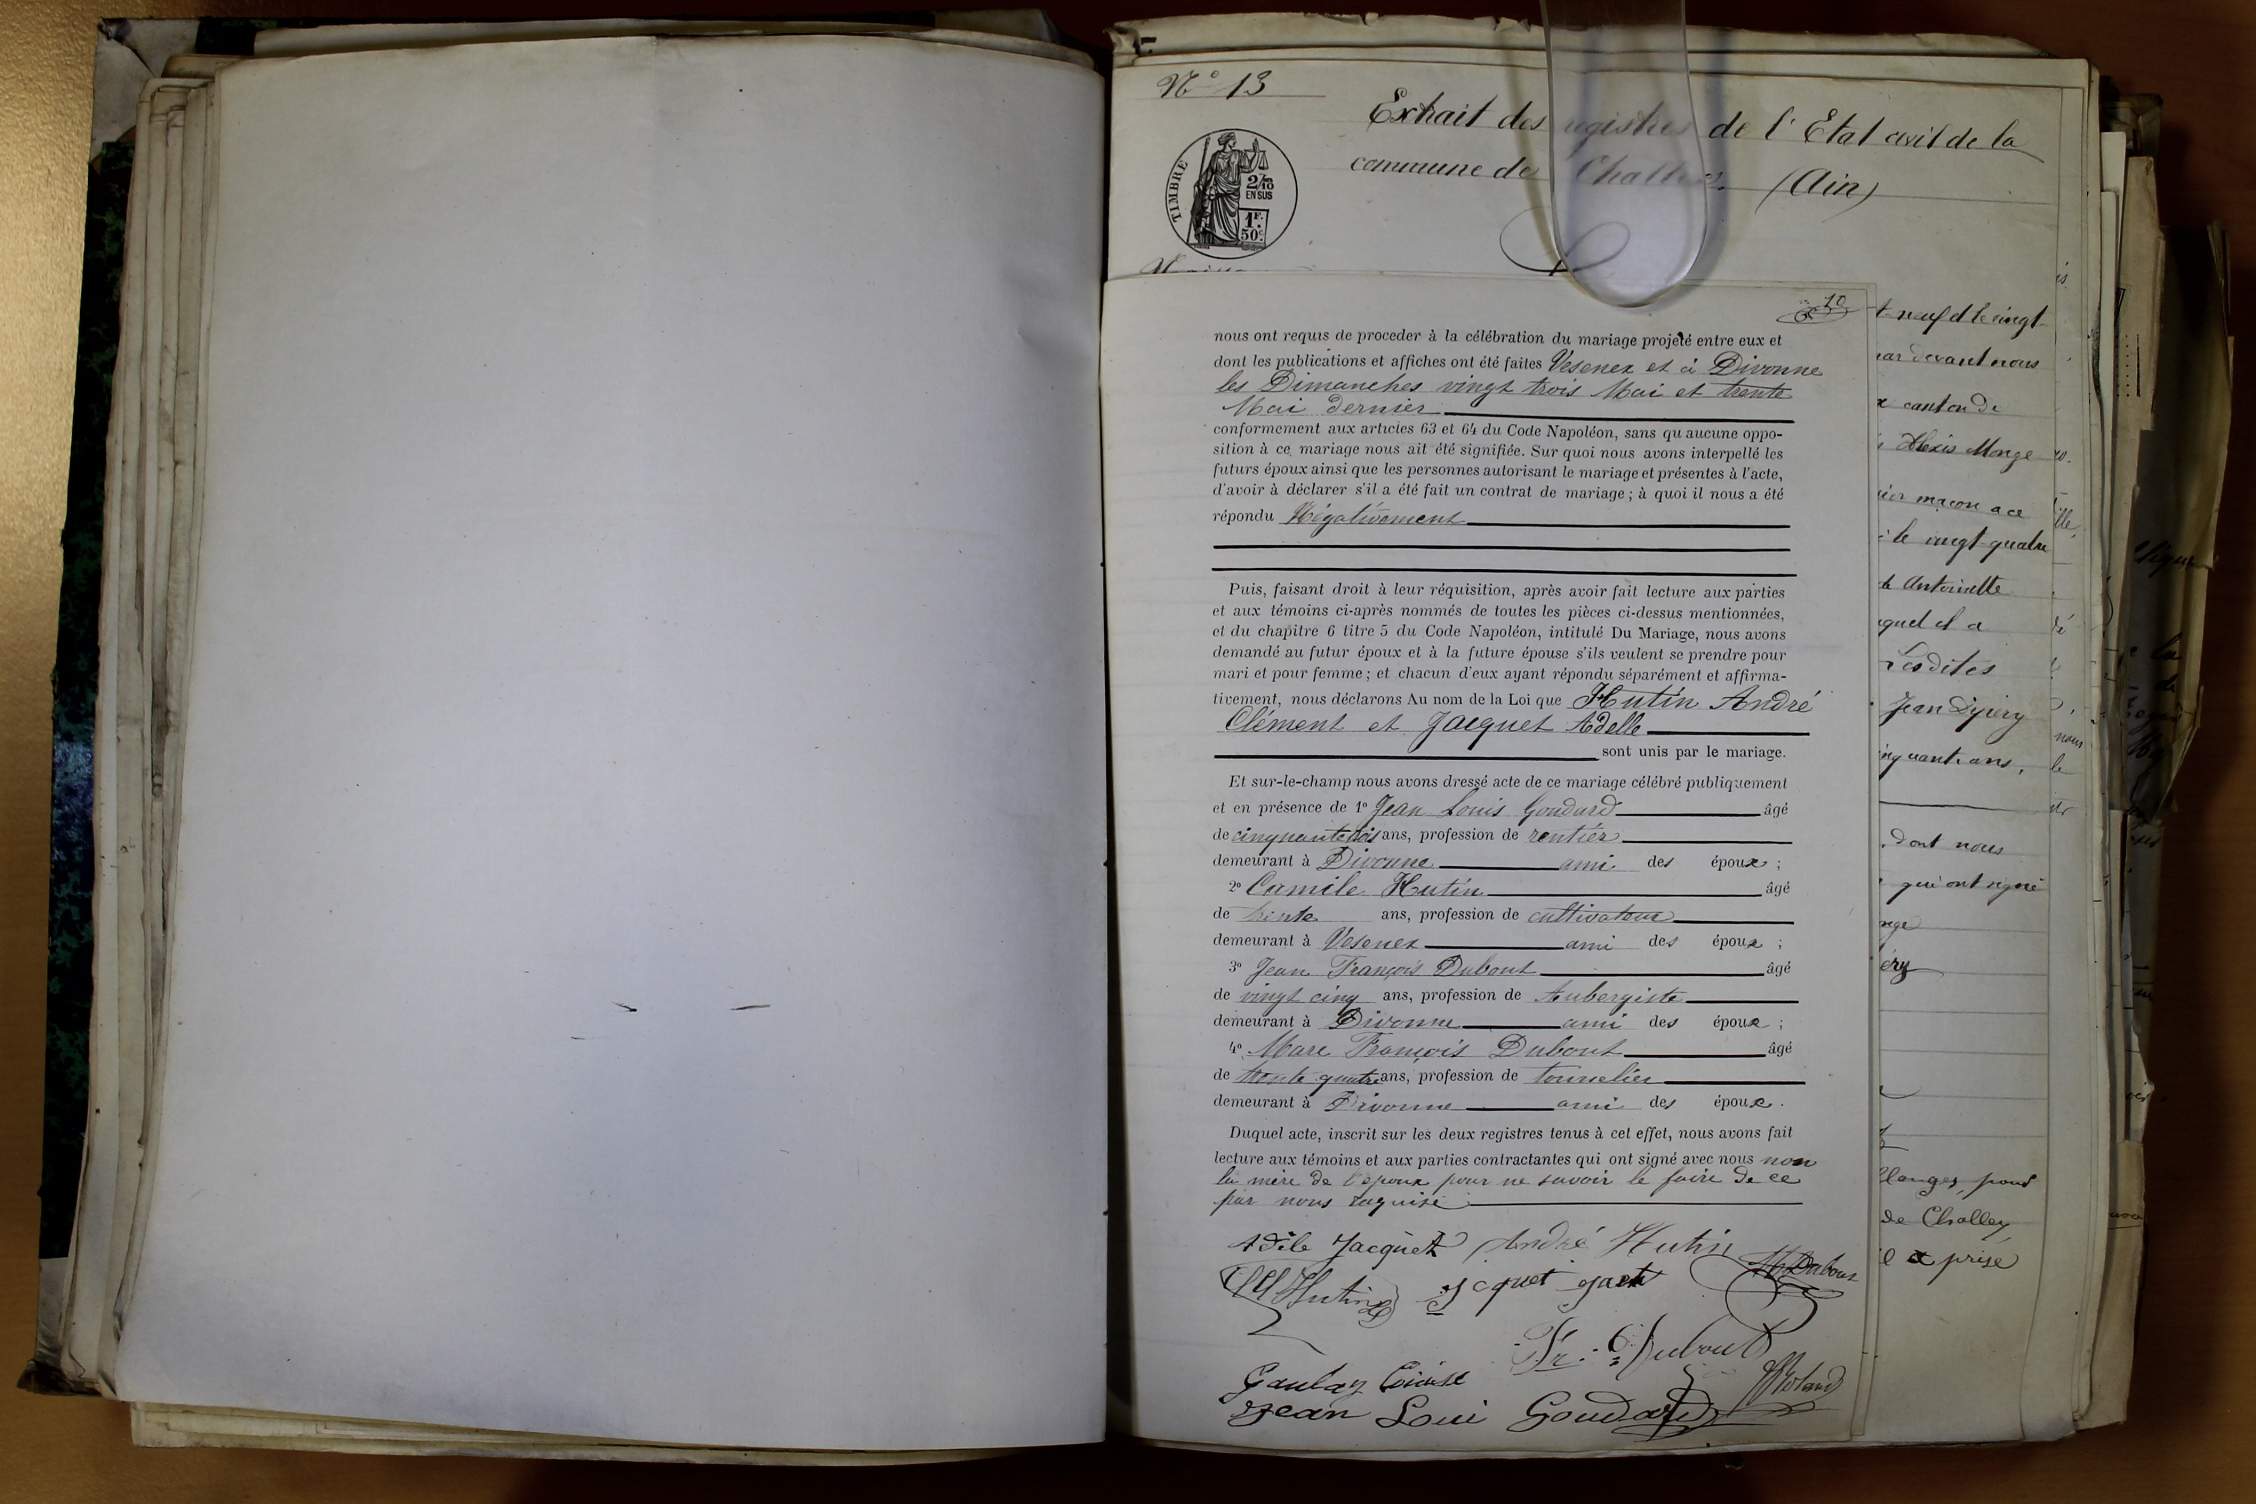 N° 13
Extrait des registres de l'Etat civil de la
commune de Challex. (Ain)
TIMBRE
2/10
EN SUS
1F.
50c.
10
nous ont requis de proceder à la célébration du mariage projeté entre eux et
dont les publications et affiches ont été faites Vesenex et à Divonne
les Dimanches vingt trois Mai et trente
Mai dernier
conformement aux articles 63 et 64 du Code Napoléon, sans qu aucune oppo-
sition à ce mariage nous ait été signifiée. Sur quoi nous avons interpellé les
futurs époux ainsi que les personnes autorisant le mariage et présentes à l'acte,
d'avoir à déclarer s'il a été fait un contrat de mariage ; à quoi il nous a été
répondu Négativement
Puis, faisant droit à leur réquisition, après avoir fait lecture aux parties
et aux témoins ci-après nommés de toutes les pièces ci-dessus mentionnées,
et du chapitre 6 titre 5 du Code Napoléon, intitulé Du Mariage, nous avons
demandé au futur époux et à la future épouse s'ils veulent se prendre pour
mari et pour femme ; et chacun d'eux ayant répondu séparément et affirma-
tivement, nous déclarons Au nom de la Loi que Hutin André
Clément et Jacquet Adelle
sont unis par le mariage.
Et sur-le-champ nous avons dressé acte de ce mariage célébré publiquement
et en présence de 1° Jean Louis Goudard âgé
de cinquante trois ans, profession de rentier
demeurant à Divonne ami des époux ;
2° Camile Hutin âgé
de trente ans, profession de cultivateur
demeurant à Vesenex ami des époux ;
3° Jean François Dubout âgé
de vingt cinq ans, profession de Aubergiste
demeurant à Divonne ami des époux ;
4° Marc François Dubout âgé
de trente quatre ans, profession de tonnelier
demeurant à Divonne ami des époux .
Duquel acte, inscrit sur les deux registres tenus à cet effet, nous avons fait
lecture aux témoins et aux parties contractantes qui ont signé avec nous non
la mère de l'époux pour ne savoir le faire de ce
par nous requise
Adèle Jacquet André Hutin
Hutin Dubout
Dubout
Jean Loui Goudard
t neuf et le vingt
par devant nous
canton de
Alexis Monge
maçon a ce
le vingt-quatre
de Antoinette
quel il a
Lesdites
Jean
cinquante ans,
dont nous
qui ont signé
pour
de Challex
prise